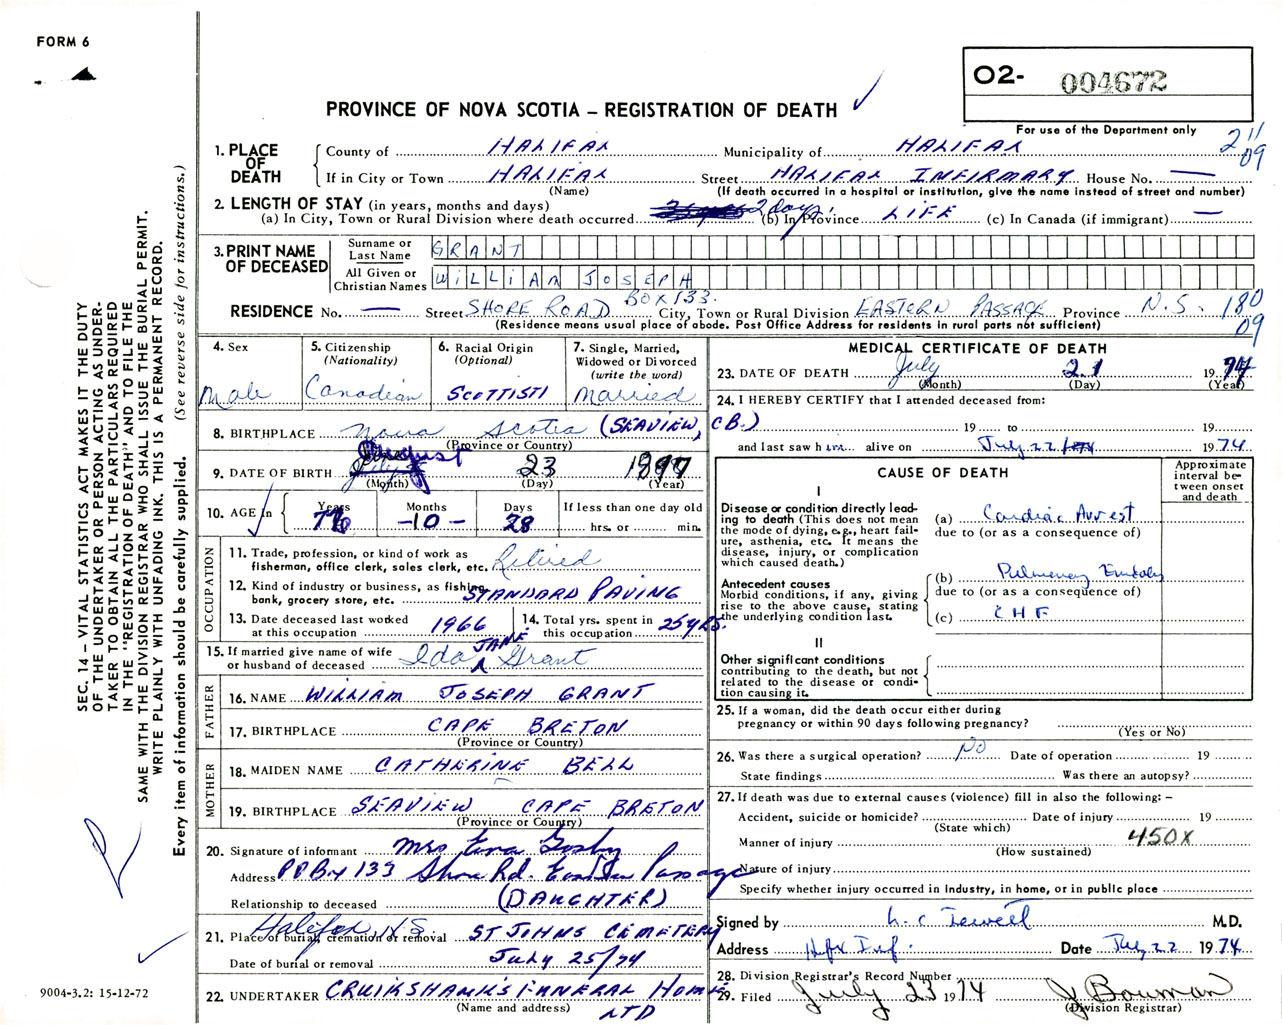 FORM 6
O2- 004672
PROVINCE OF NOVA SCOTIA – REGISTRATION OF DEATH
For use of the Department only
2 11
09
1. PLACE OF DEATH
County of HALIFAX Municipality of HALIFAX
If in City or Town HALIFAX Street HALIFAX INFIRMARY House No. —
(Name) (If death occurred in a hospital or institution, give the name instead of street and number)
2. LENGTH OF STAY (in years, months and days)
(a) In City, Town or Rural Division where death occurred 2 days (b) In Province LIFE (c) In Canada (if immigrant) —
3. PRINT NAME OF DECEASED
Surname or Last Name GRANT
All Given or Christian Names WILLIAM JOSEPH
RESIDENCE No. — Street SHORE ROAD BOX 133. City, Town or Rural Division EASTERN PASSAGE Province N.S. 180
09
(Residence means usual place of abode. Post Office Address for residents in rural parts not sufficient)
4. Sex Male
5. Citizenship (Nationality) Canadian
6. Racial Origin (Optional) SCOTTISH
7. Single, Married, Widowed or Divorced (write the word) Married
8. BIRTHPLACE Nova Scotia (SEAVIEW, CB.)
(Province or Country)
9. DATE OF BIRTH August 23 1897
(Month) (Day) (Year)
10. AGE in Years 76 Months -10- Days 28 If less than one day old hrs. or min.
OCCUPATION
11. Trade, profession, or kind of work as fisherman, office clerk, sales clerk, etc. Retired
12. Kind of industry or business, as fishing, bank, grocery store, etc. STANDARD PAVING
13. Date deceased last worked at this occupation 1966
14. Total yrs. spent in this occupation 25 yrs.
15. If married give name of wife or husband of deceased Ida JANE Grant
FATHER
16. NAME WILLIAM JOSEPH GRANT
17. BIRTHPLACE CAPE BRETON
(Province or Country)
MOTHER
18. MAIDEN NAME CATHERINE BELL
19. BIRTHPLACE SEAVIEW CAPE BRETON
(Province or Country)
20. Signature of informant Mrs
Address 133 Shore Rd. Eastern Passage
Relationship to deceased (DAUGHTER)
21. Place of burial, cremation or removal Halifax N.S ST JOHNS CEMETERY
Date of burial or removal July 25/74
22. UNDERTAKER CRUIKSHANKS FUNERAL HOME LTD
(Name and address)
MEDICAL CERTIFICATE OF DEATH
23. DATE OF DEATH July 21 1974
(Month) (Day) (Year)
24. I HEREBY CERTIFY that I attended deceased from:
19 to 19
and last saw him alive on July 22/74 1974
CAUSE OF DEATH
Approximate interval between onset and death
I
Disease or condition directly leading to death (This does not mean the mode of dying, e.g., heart failure, asthenia, etc. It means the disease, injury, or complication which caused death.)
(a) Cardiac Arrest
due to (or as a consequence of)
Antecedent causes
Morbid conditions, if any, giving rise to the above cause, stating the underlying condition last.
(b) Pulmonary
due to (or as a consequence of)
(c) CHF
II
Other significant conditions contributing to the death, but not related to the disease or condition causing it.
25. If a woman, did the death occur either during pregnancy or within 90 days following pregnancy?
(Yes or No)
26. Was there a surgical operation? No Date of operation 19
State findings Was there an autopsy?
27. If death was due to external causes (violence) fill in also the following: –
Accident, suicide or homicide? Date of injury 19
(State which)
Manner of injury 450X
(How sustained)
Nature of injury
Specify whether injury occurred in Industry, in home, or in public place
Signed by M.D.
Address Hfx Inf. Date July 22 1974
28. Division Registrar's Record Number
29. Filed July 23 1974 J Bowman
(Division Registrar)
SEC. 14 – VITAL STATISTICS ACT MAKES IT THE DUTY
OF THE UNDERTAKER OR PERSON ACTING AS UNDER-
TAKER TO OBTAIN ALL THE PARTICULARS REQUIRED
IN THE "REGISTRATION OF DEATH" AND TO FILE THE
SAME WITH THE DIVISION REGISTRAR WHO SHALL ISSUE THE BURIAL PERMIT.
WRITE PLAINLY WITH UNFADING INK. THIS IS A PERMANENT RECORD.
Every item of information should be carefully supplied. (See reverse side for instructions.)
9004-3.2: 15-12-72